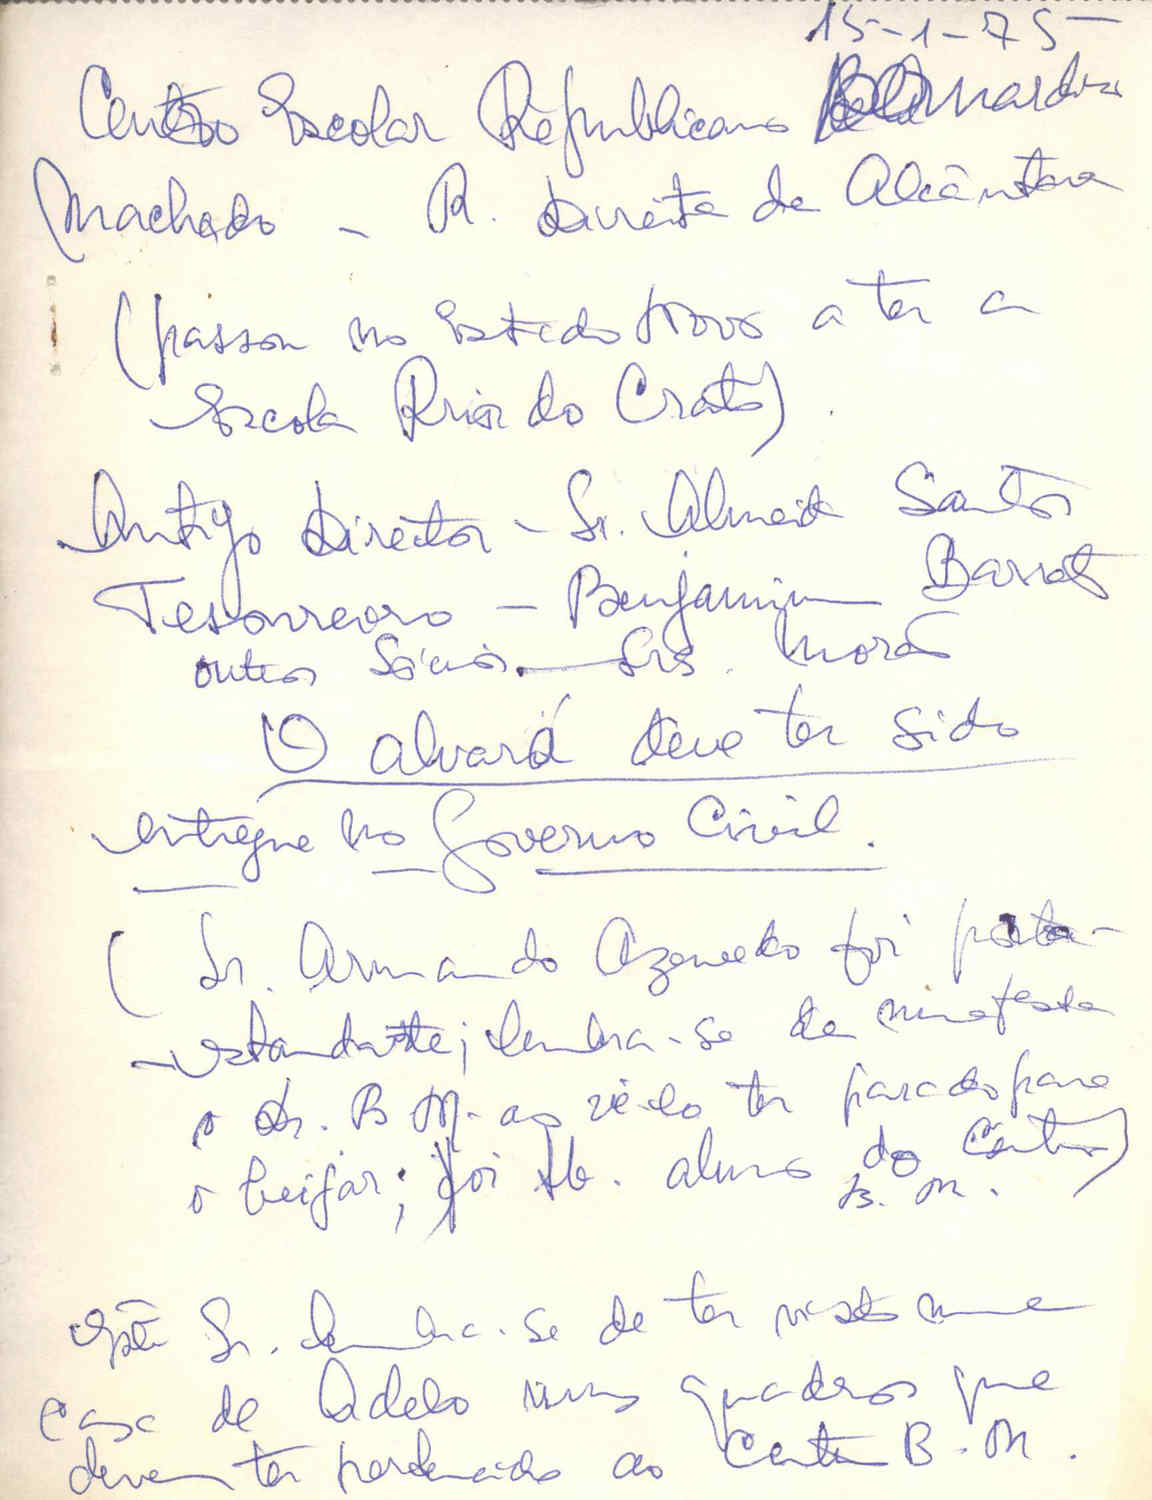 15-1-75
Centro Escolar Republicano Bernardino
Machado - R. Direita de Alcântara
(passou no Estado Novo a ter a
Escola Prior do Crato).
Antigo Director - Sr. Almeida Santos
Tesoureiro - Benjamim Barrot
outros Sócios. - Srs. Morão
O alvará deve ter sido
entregue no Governo Civil.
(Sr. Armando Azevedo foi porta-
-estandarte; lembra-se de numa festa
o Dr. B M. ao vê-lo ter parado para
o beijar; foi tb. aluno do Centro
B. M.)
Este Sr. lembra-se de ter visto numa
casa de Adelo uns quadros que
devem ter pertencido ao Centro B. M.